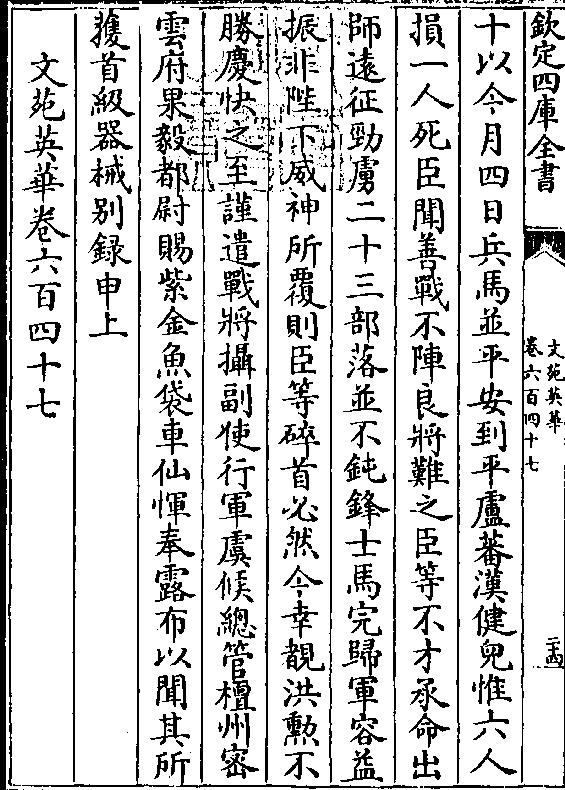 欽定四庫全書
文苑英華
卷六百四十七
二十四
十以今月四日兵馬並平安到平盧蕃漢健兒惟六人
損一人死臣聞善戰不陣良將難之臣等不才承命出
師遠征勁虜二十三部落並不鈍鋒士馬完歸軍容益
振非陛下威神所覆則臣等碎首必然今幸覩洪勲不
勝慶快之至謹遣戰將攝副使行軍虞候總管檀州密
雲府果毅都尉賜紫金魚袋車仙惲奉露布以聞其所
獲首級器械别録申上
文苑英華卷六百四十七